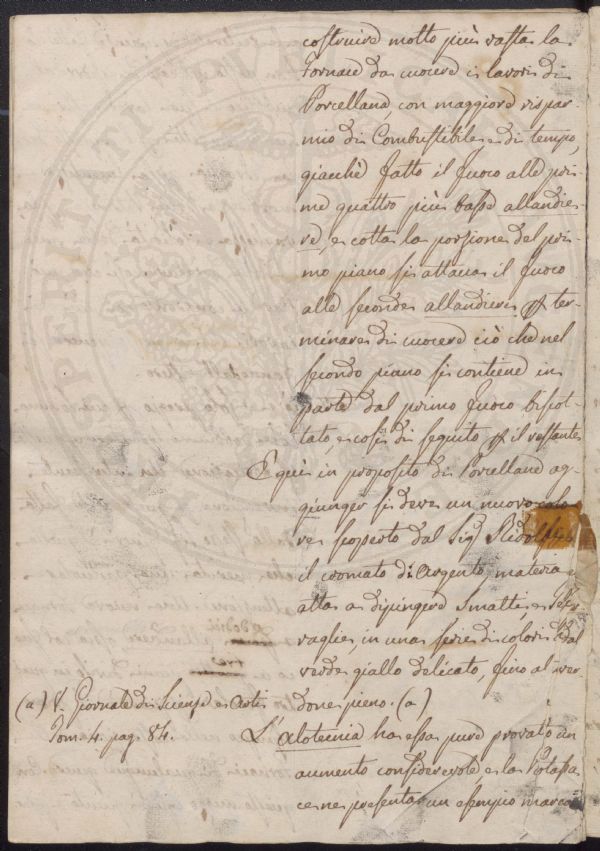 costruire molto più vasta la
Fornace da cuocere i lavori di
Porcellana, con maggiore rispar-
mio di Combustibile, e di tempo,
giacchè fatto il fuoco alle pri-
me quattro più basse allandie-
re, e cotta la porzione del pri-
mo piano si attacca il fuoco
alle seconde allandiere ter-
minare di cuocere ciò che nel
secondo piano si contiene in
parte dal primo fuoco biscot-
tato, e così di seguito il restante
E quì in proposito di Porcellane ag-
giunger si deve un nuovo colo-
re scoperto dal Sig. Ridolfi
il cromato di Argento, materia
atta a dipingere Smalti e
in una serie di colori dal
verde giallo delicato, fino al ver-
done pieno. (a)
(a) V. Giornale di Scienze e Arti
Tom. 4. pag. 84.
L'alotecnia ha essa pure provato un
aumento considerevole, e la Potassa
ce ne presenta un esempio marca-